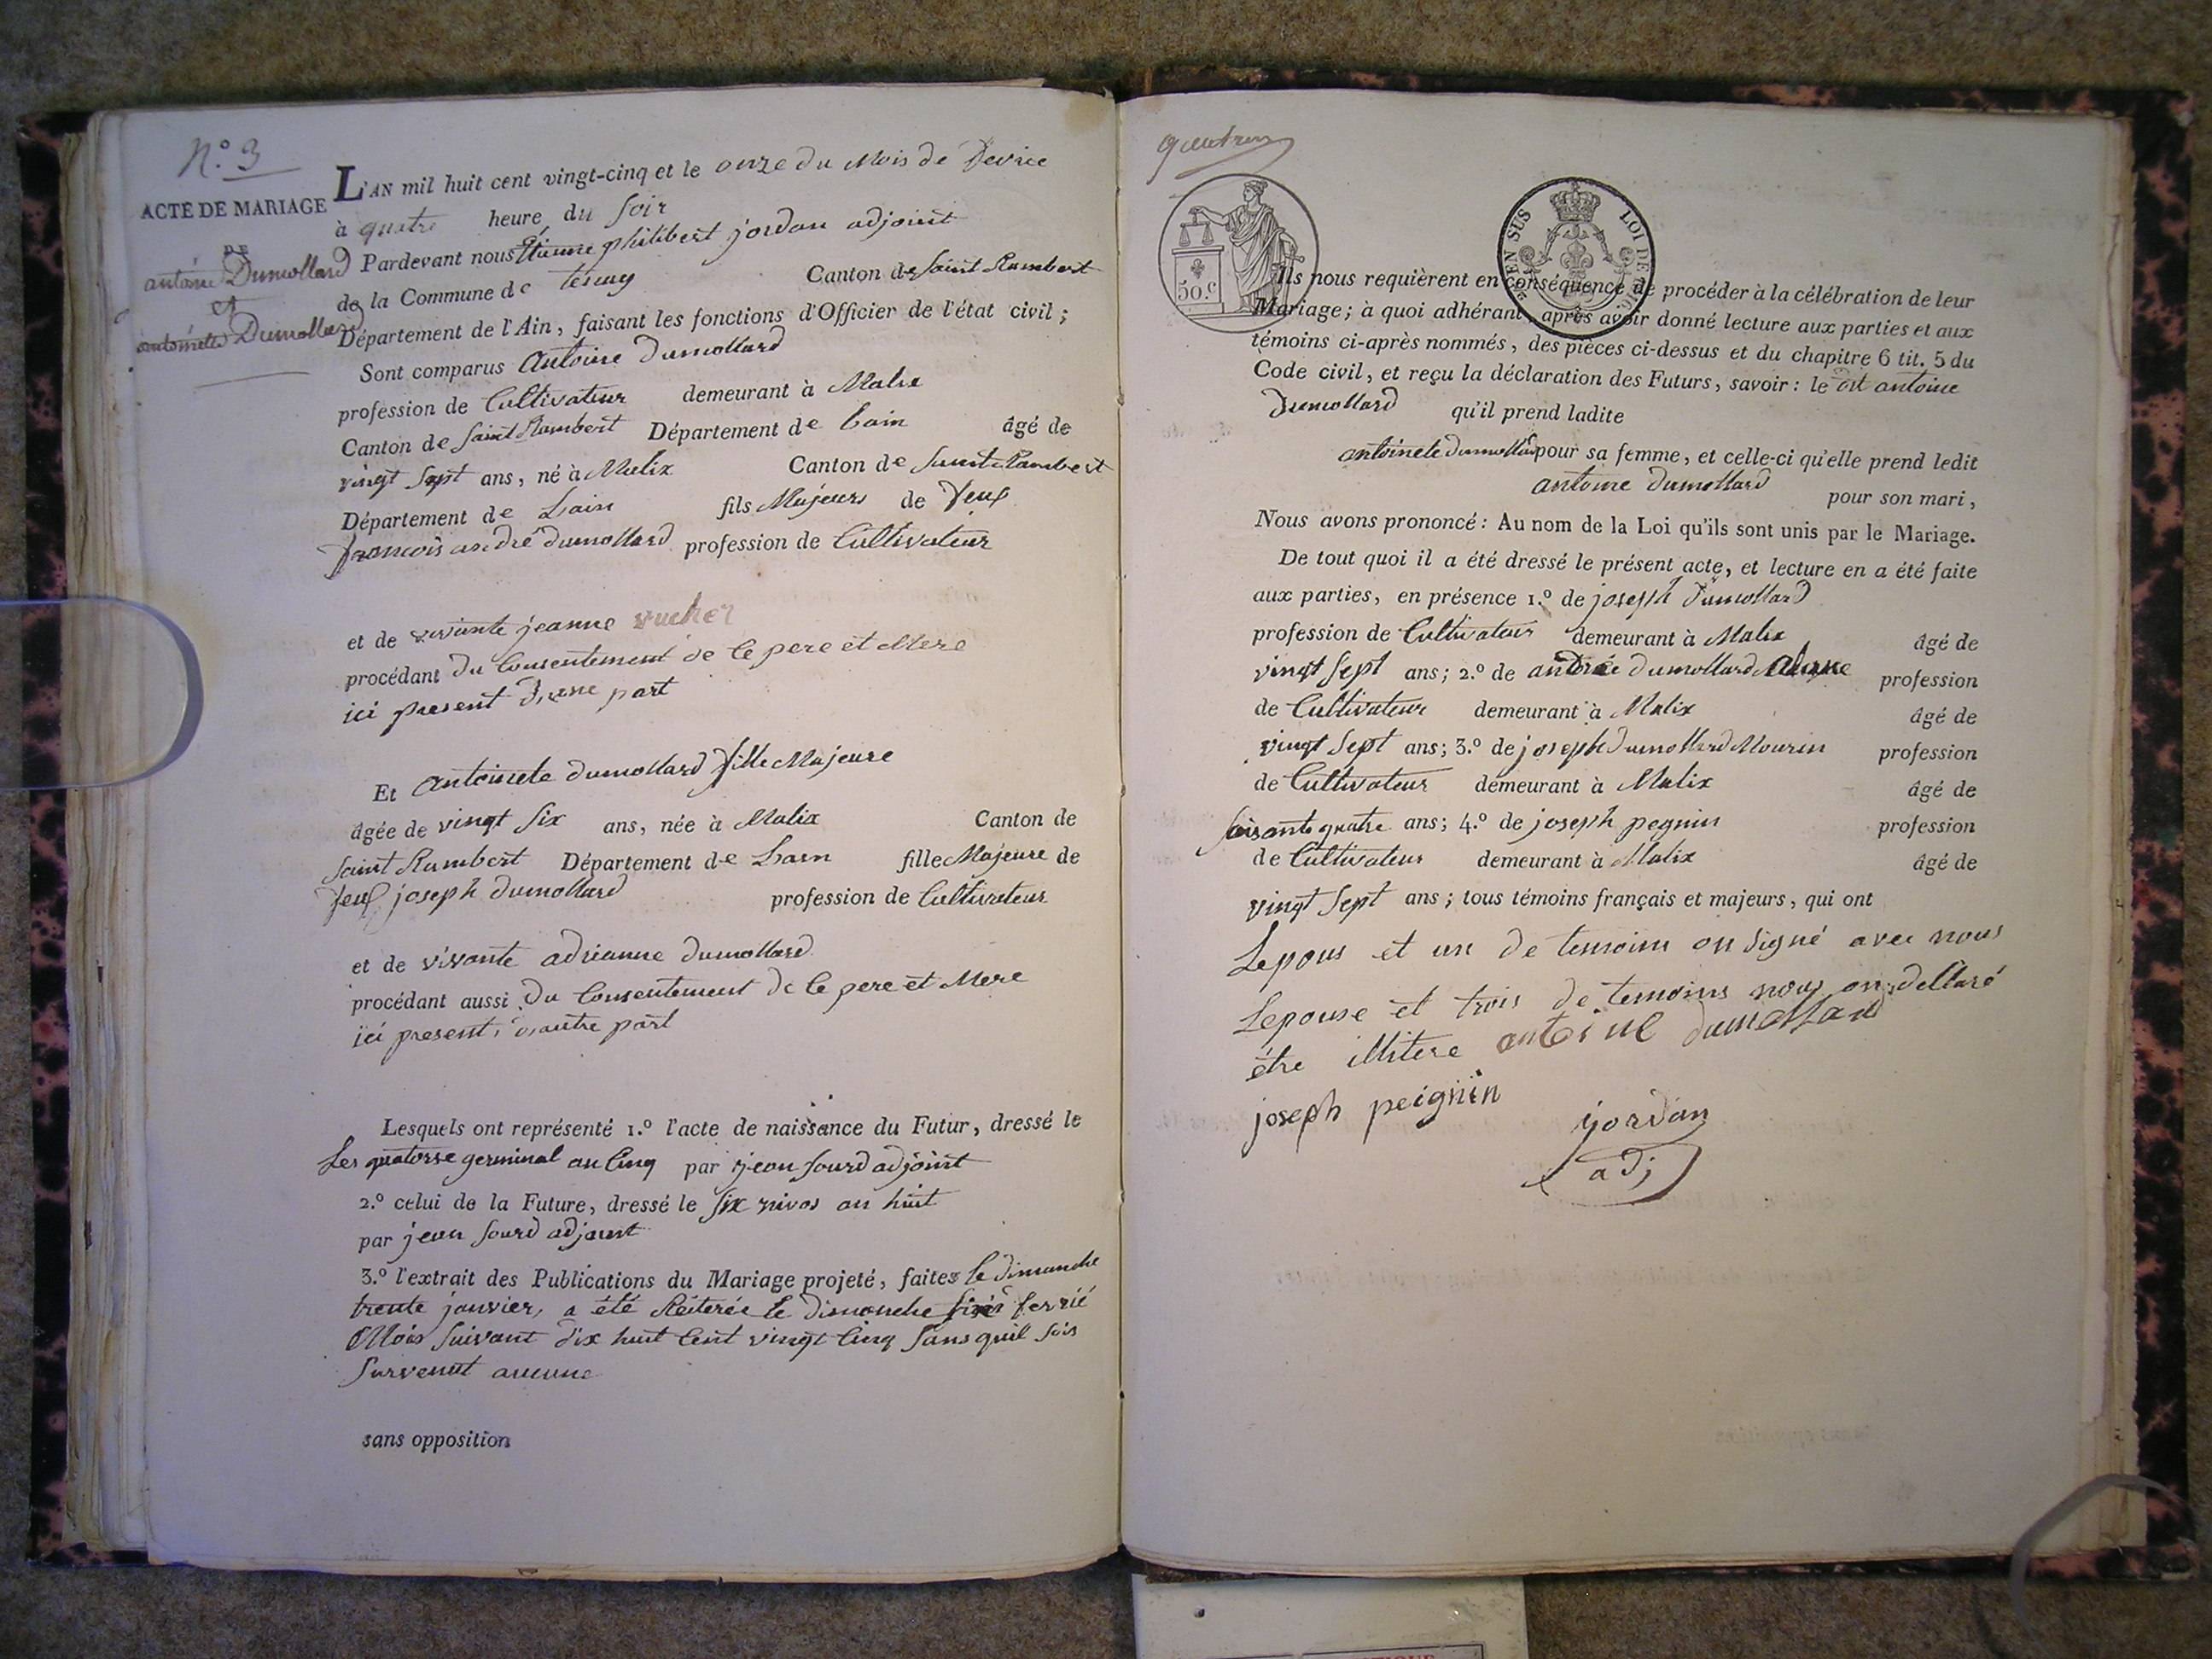 N.º 3
ACTE DE MARIAGE
DE
antoine Dumollard
et
antoinete Dumollard
L'AN mil huit cent vingt-cinq et le onze du Mois de
à quatre heure du soir
Pardevant nous Étienne philibert jordan adjoint
de la Commune de tenay Canton de Saint Rambert
Département de l'Ain, faisant les fonctions d'Officier de l'état civil;
Sont comparus Antoine Dumollard
profession de Cultivateur demeurant à Malix
Canton de Saint Rambert Département de Lain âgé de
vingt sept ans, né à Malix Canton de Saint Rambert
Département de Lain fils Majeur de feux
francois andré dumollard profession de Cultivateur
et de vivante jeanne vucher
procédant du Consentement de Ce pere et Mere
ici present d'une part
Et Antoinete dumollard fille Majeure
âgée de vingt six ans, née à Malix Canton de
Saint Rambert Département de Lain fille Majeure de
feux joseph dumollard profession de Cultivateur
et de vivante adrianne dumollard
procédant aussi du Consentement de Ce pere et Mere
ici present, d'autre part
Lesquels ont représenté 1.º l'acte de naissance du Futur, dressé le
Les quatorse germinal an Cinq par jean sourd adjoint
2.º celui de la Future, dressé le six nivos an huit
par jean sourd adjoint
3.º l'extrait des Publications du Mariage projeté, faites le dimanche
trente janvier, a été Réiterée le dimanche fevrié
Mois suivant dix huit Cent vingt Cinq sans quil sois
survenut aucune
sans opposition
50.C
EN SUS LOI DE
Ils nous requièrent en conséquence de procéder à la célébration de leur
Mariage; à quoi adhérant, après avoir donné lecture aux parties et aux
témoins ci-après nommés, des pièces ci-dessus et du chapitre 6 tit. 5 du
Code civil, et reçu la déclaration des Futurs, savoir: le dit antoine
Dumollard qu'il prend ladite
antoinete dumollard pour sa femme, et celle-ci qu'elle prend ledit
antoine dumollard pour son mari,
Nous avons prononcé: Au nom de la Loi qu'ils sont unis par le Mariage.
De tout quoi il a été dressé le présent acte, et lecture en a été faite
aux parties, en présence 1.º de joseph Dumollard
profession de Cultivateur demeurant à Malix âgé de
vingt sept ans; 2.º de andrée dumollard profession
de Cultivateur demeurant à Malix âgé de
vingt sept ans; 3.º de joseph dumollard Mourin profession
de Cultivateur demeurant à Malix âgé de
soisante quatre ans; 4.º de joseph pegnin profession
de Cultivateur demeurant à Malix âgé de
vingt sept ans; tous témoins français et majeurs, qui ont
Lepous et un de temoins on signé avec nous
Lepouse et trois de temoins nous on dellaré
étre illitere antoine dumollard
joseph peignin
jordan
adj